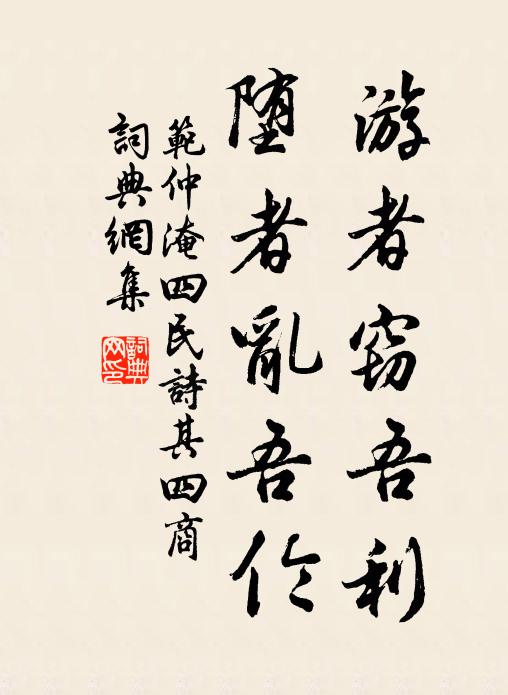 游者窃吾利
堕者亂吾伦
範仲淹四民詩其四商
詞典網集
詞典网印